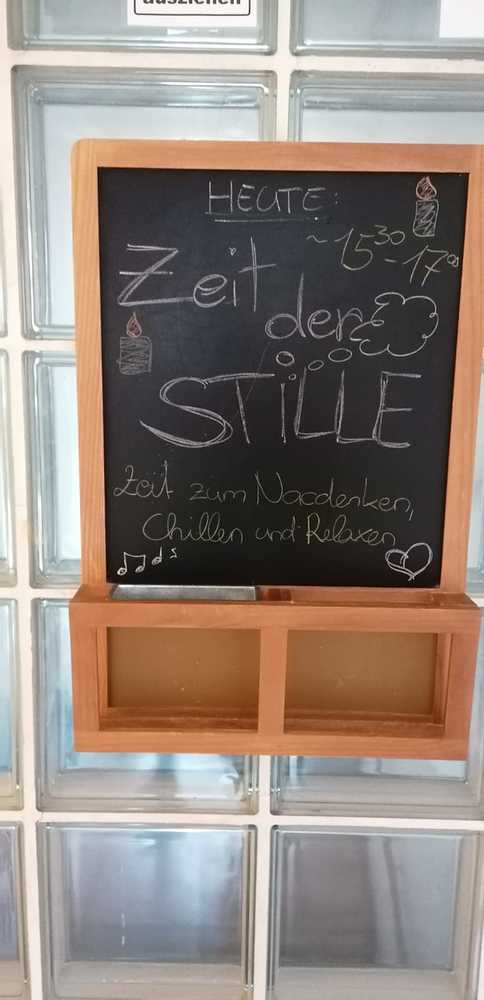 ausziehen
HEUTE:
~15³⁰-17⁰⁰
Zeit
der
STiLLE
Zeit zum Nacdenken,
Chillen und Relaxen